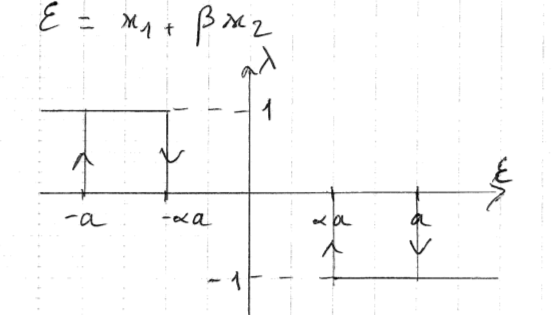 ε = x₁ + βx₂
λ
1
ε
-a
-αa
αa
a
-1